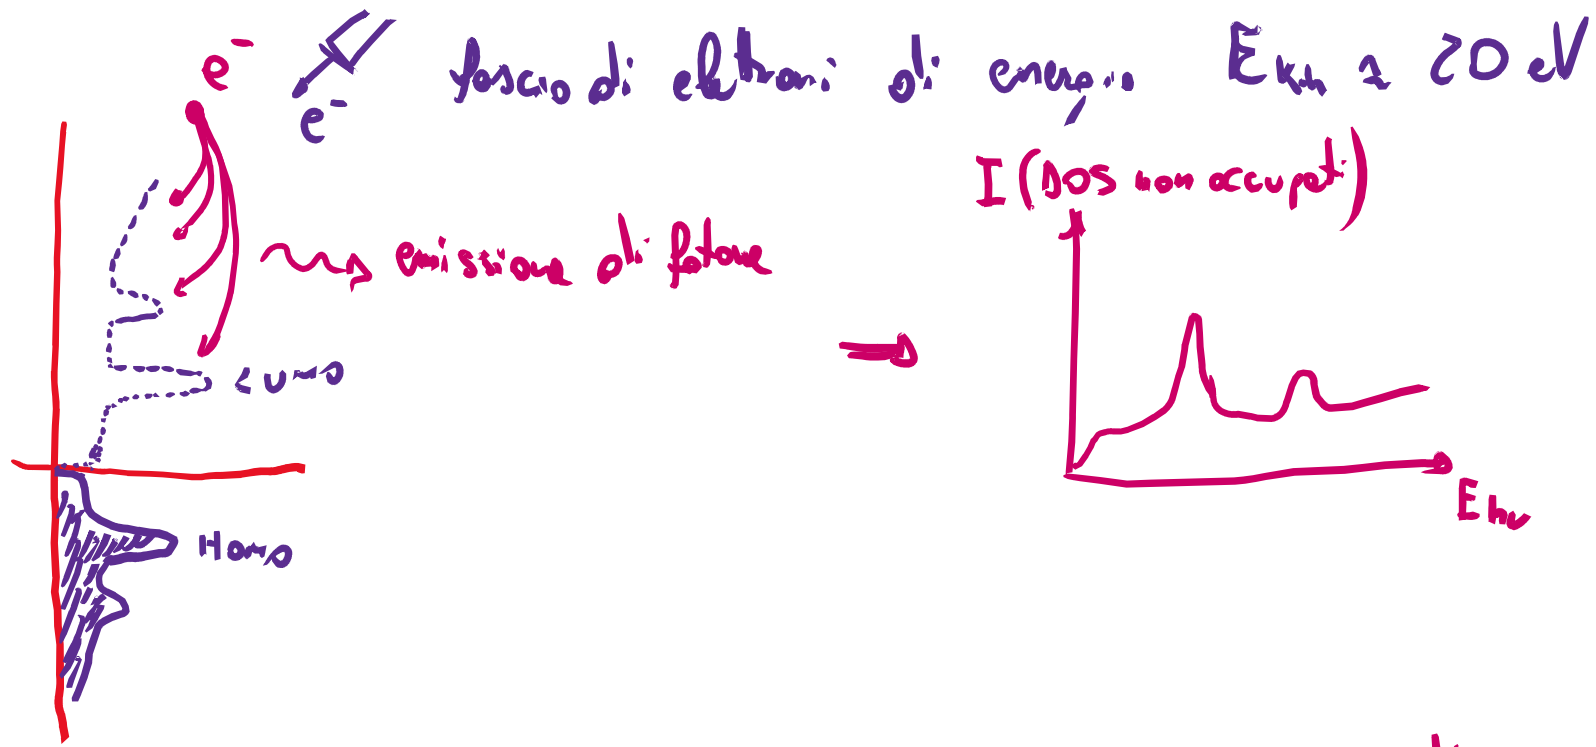 e⁻
e⁻
fascio di elettroni di energia Ekin ≈ 20 eV
I (DOS non occupati)
emissione di fotone
LUMO
HOMO
Ehν